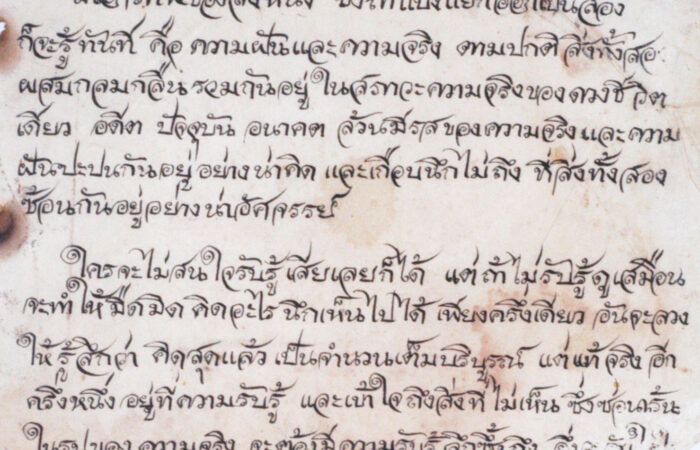 ของสิ่งหนึ่ง ซึ่งถ้าแบ่งแยกออกเป็นสอง
ก็จะรู้ทันที คือ ความฝันและความจริง ตามปกติ สิ่งทั้งสอ
ผสมกลมกลืน รวมกันอยู่ ในสภาวะความจริงของดวงชีวิต
เดียว อดีต ปัจจุบัน อนาคต ล้วนมีรสของความจริง และความ
ฝันปะปนกันอยู่ อย่างน่าคิด และเกือบนึกไม่ถึง ที่สิ่งทั้งสอง
ซ้อนกันอยู่อย่างน่าอัศจรรย์
ใครจะไม่สนใจรับรู้ เสียเลยก็ได้ แต่ถ้าไม่รับรู้ดูเสมือน
จะทำให้มืดมิด คิดอะไร นึกเห็นไปได้ เพียงครึ่งเดียว อันจะลวง
ให้รู้สึกว่า คิดสุดแล้ว เป็นจำนวนเต็มบริบูรณ์ แต่แท้จริง อีก
ครึ่งหนึ่ง อยู่ที่ความรับรู้ และเข้าใจถึงสิ่งที่ไม่เห็น ซึ่งซ่อนเร้น
ในรูปของความจริง จะต้องมีความรับรู้ลึกซึ้งถึง